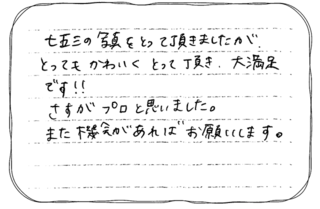 七五三の写真をとって頂きましたが、
とってもかわいくとって頂き、大満足
です!!
さすがプロと思いました。
また機会があればお願いします。